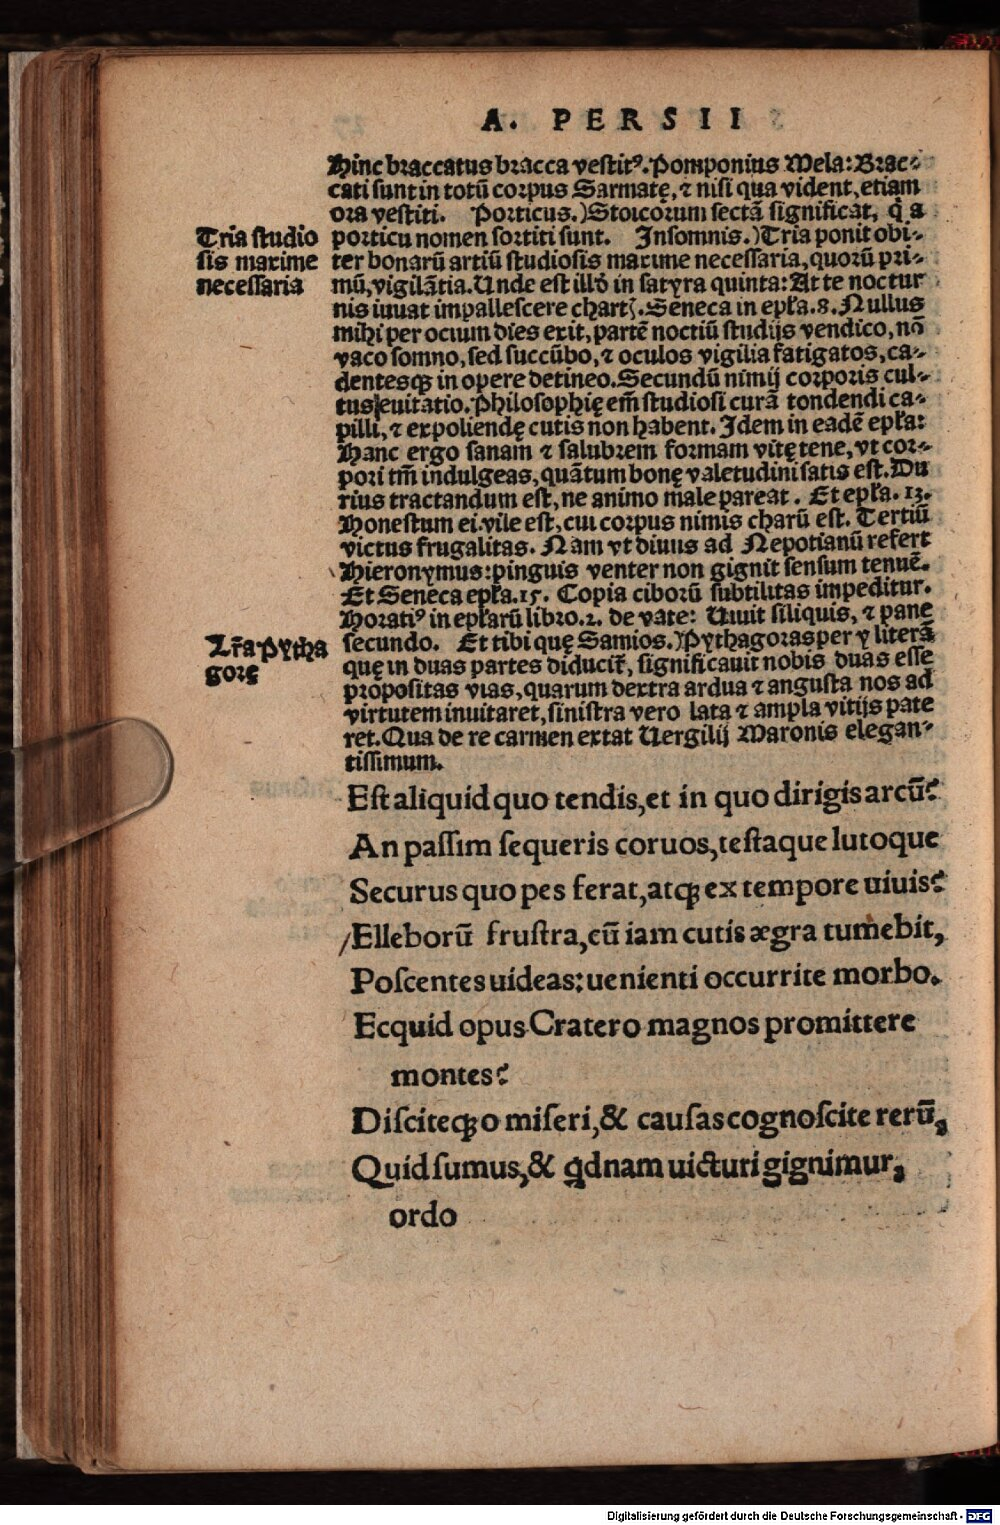 A. PERSII
Hinc braccatus bracca vestitꝰ. Pomponius Mela: Brac⸗
cati sunt in totū corpus Sarmatę, ⁊ nisi qua vident, etiam
ora vestiti. Porticus.) Stoicorum sectā significat, q̇ a
porticu nomen sortiti sunt. Insomnis.) Tria ponit obi⸗
ter bonarū artiū studiosis maxime necessaria, quorū pri⸗
mū, vigilātia. Unde est illđ in satyra quinta: At te noctur
nis iuuat impallescere chartꝭ. Seneca in epła. 8. Nullus
mihi per ocium dies exit, partē noctiū studijs vendico, nō
vaco somno, sed succūbo, ⁊ oculos vigilia fatigatos, ca⸗
dentesqꝫ in opere detineo. Secundū nimij corporis cul⸗
tus euitatio. Philosophię em̄ studiosi curā tondendi ca⸗
pilli, ⁊ expoliendę cutis non habent. Idem in eadē epła:
Hanc ergo sanam ⁊ salubrem formam vitę tene, vt cor⸗
pori tm̄ indulgeas, quātum bonę valetudini satis est. Du
rius tractandum est, ne animo male pareat. Et epła. 13.
Honestum ei vile est, cui corpus nimis charū est. Tertiū
victus frugalitas. Nam vt diuus ad Nepotianū refert
Hieronymus: pinguis venter non gignit sensum tenuē.
Et Seneca epła. 15. Copia ciborū subtilitas impeditur.
Horatiꝰ in epłarū libro. 2. de vate: Uiuit siliquis, ⁊ pane
secundo. Et tibi quę Samios.) Pythagoras per y literā
quę in duas partes diducit̃, significauit nobis duas esse
propositas vias, quarum dextra ardua ⁊ angusta nos ad
virtutem inuitaret, sinistra vero lata ⁊ ampla vitijs pate
ret. Qua de re carmen extat Uergilij Maronis elegan⸗
tissimum.
Tria studio
sis maxime
necessaria
Lr̃a Pytha
gorę
Est aliquid quo tendis, et in quo dirigis arcū?
An passim sequeris coruos, testaque lutoque
Securus quo pes ferat, atqꝫ ex tempore uiuis?
Elleborū frustra, cū iam cutis ægra tumebit,
Poscentes uideas: uenienti occurrite morbo.
Ecquid opus Cratero magnos promittere
montes?
Disciteqꝫ o miseri, & causas cognoscite rerū,
Quid sumus, & qͥdnam uicturi gignimur,
ordo
Digitalisierung gefördert durch die Deutsche Forschungsgemeinschaft - DFG